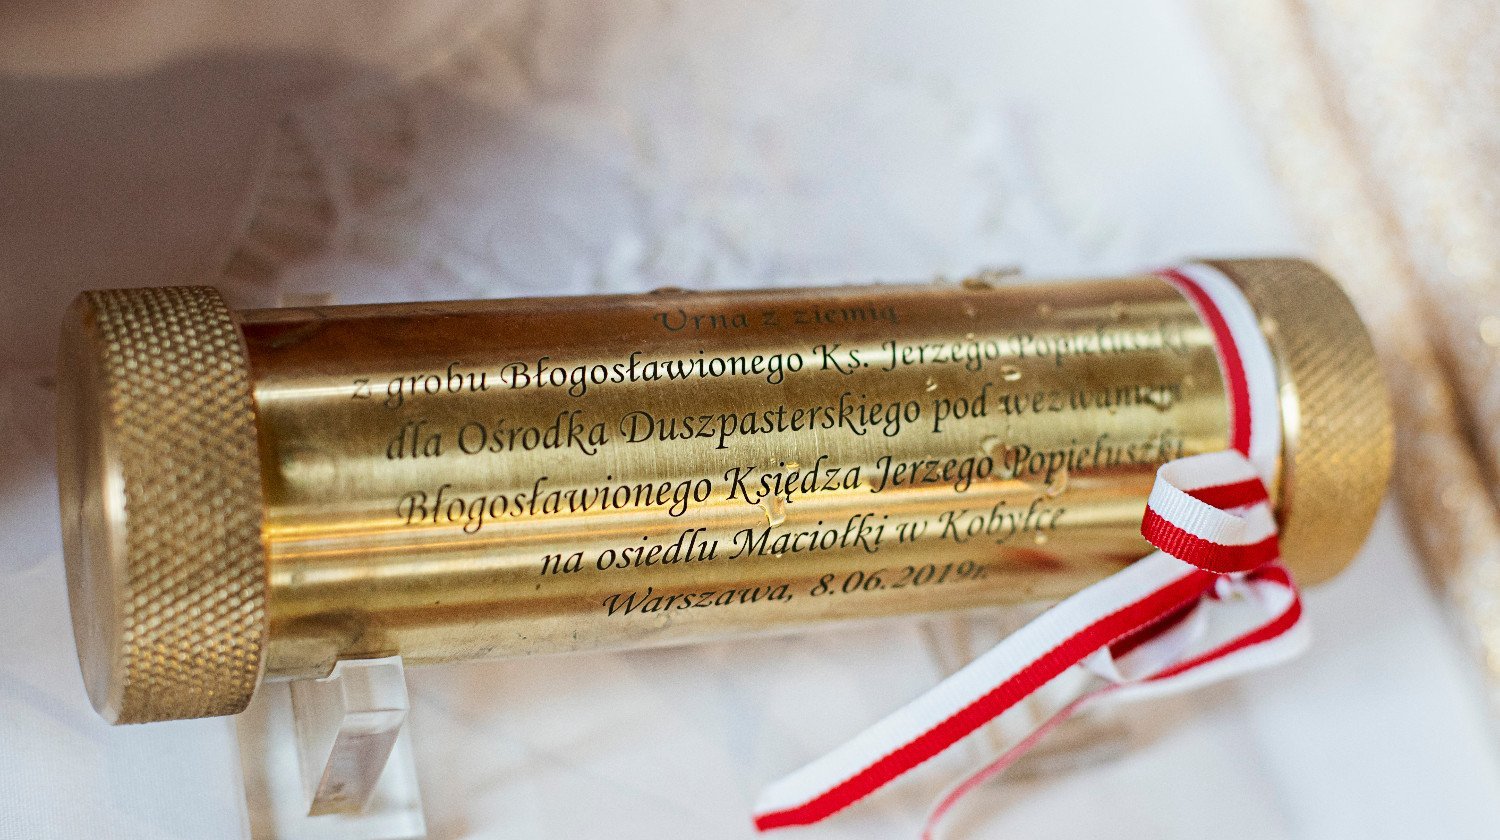 Urna z ziemią
z grobu Błogosławionego Ks. Jerzego Popiełuszki
dla Ośrodka Duszpasterskiego pod wezwaniem
Błogosławionego Księdza Jerzego Popiełuszki
na osiedlu Maciołki w Kobyłce
Warszawa, 8.06.2019r.